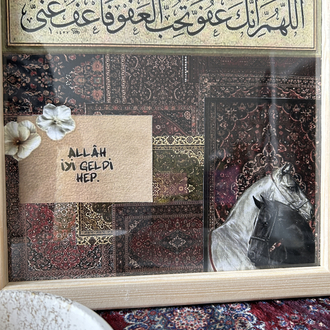 اللهم إنك عفو تحب العفو فاعف عني
ALLÂH
İYİ GELDİ
HEP.